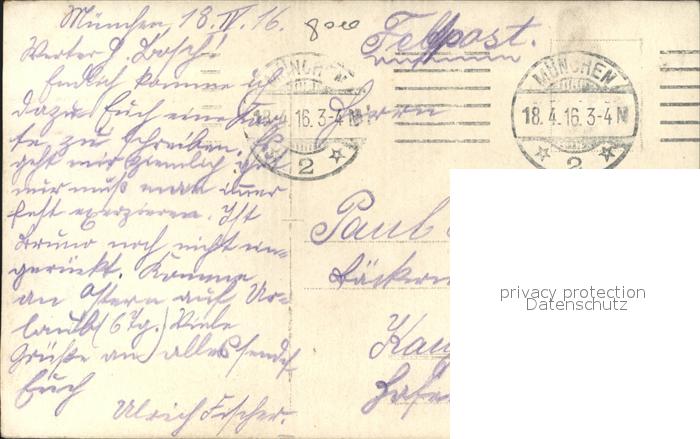 München, 18.IV.16.
Werter H. Bosch!
Endlich komme ich
dazu Euch eine Kar-
te zu schreiben. Es
geht mir ziemlich gut
nur muß man immer
fest exerzieren. Ist
Bruno noch nicht ein-
gerückt. Komme
an Ostern auf Ur-
laub (6 Tg.) Viele
Grüße an alle sendet
Euch
Ulrich Fischer.
8000
Feldpost.
MÜNCHEN
18.4.16. 3-4 N
2
MÜNCHEN
18.4.16. 3-4 N
2
Herrn
Paul
Bäckerm
Kau
Hafe
privacy protection
Datenschutz